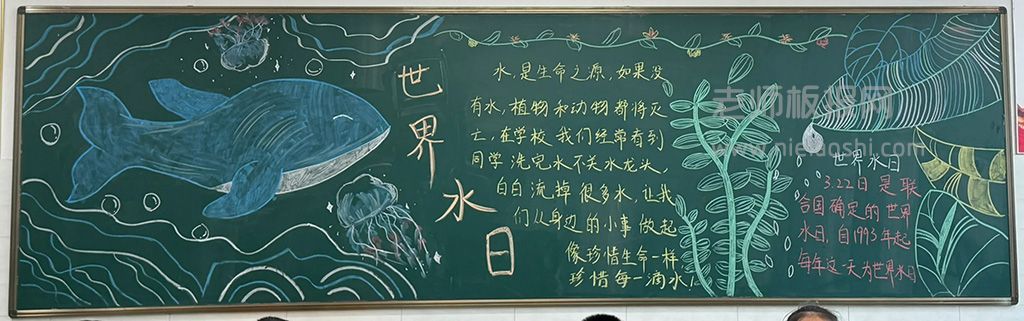 世界水日
水,是生命之源,如果没
有水,植物和动物都将灭
亡,在学校我们经常看到
同学洗完水不关水龙头,
白白流掉很多水,让我
们从身边的小事做起
像珍惜生命一样
珍惜每一滴水!
世界水日
3.22日是联
合国确定的世界
水日,自1993年起
每年这一天为世界水日
老师板报网